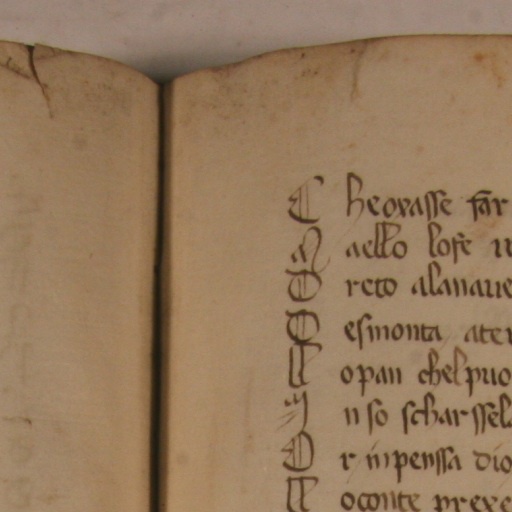 C heoxasse far
M aello lose
D reto alanaue
D esmonta ater
L opan chelpuo
I n so scharssela
O r inpenssa dio
L oconte prexe